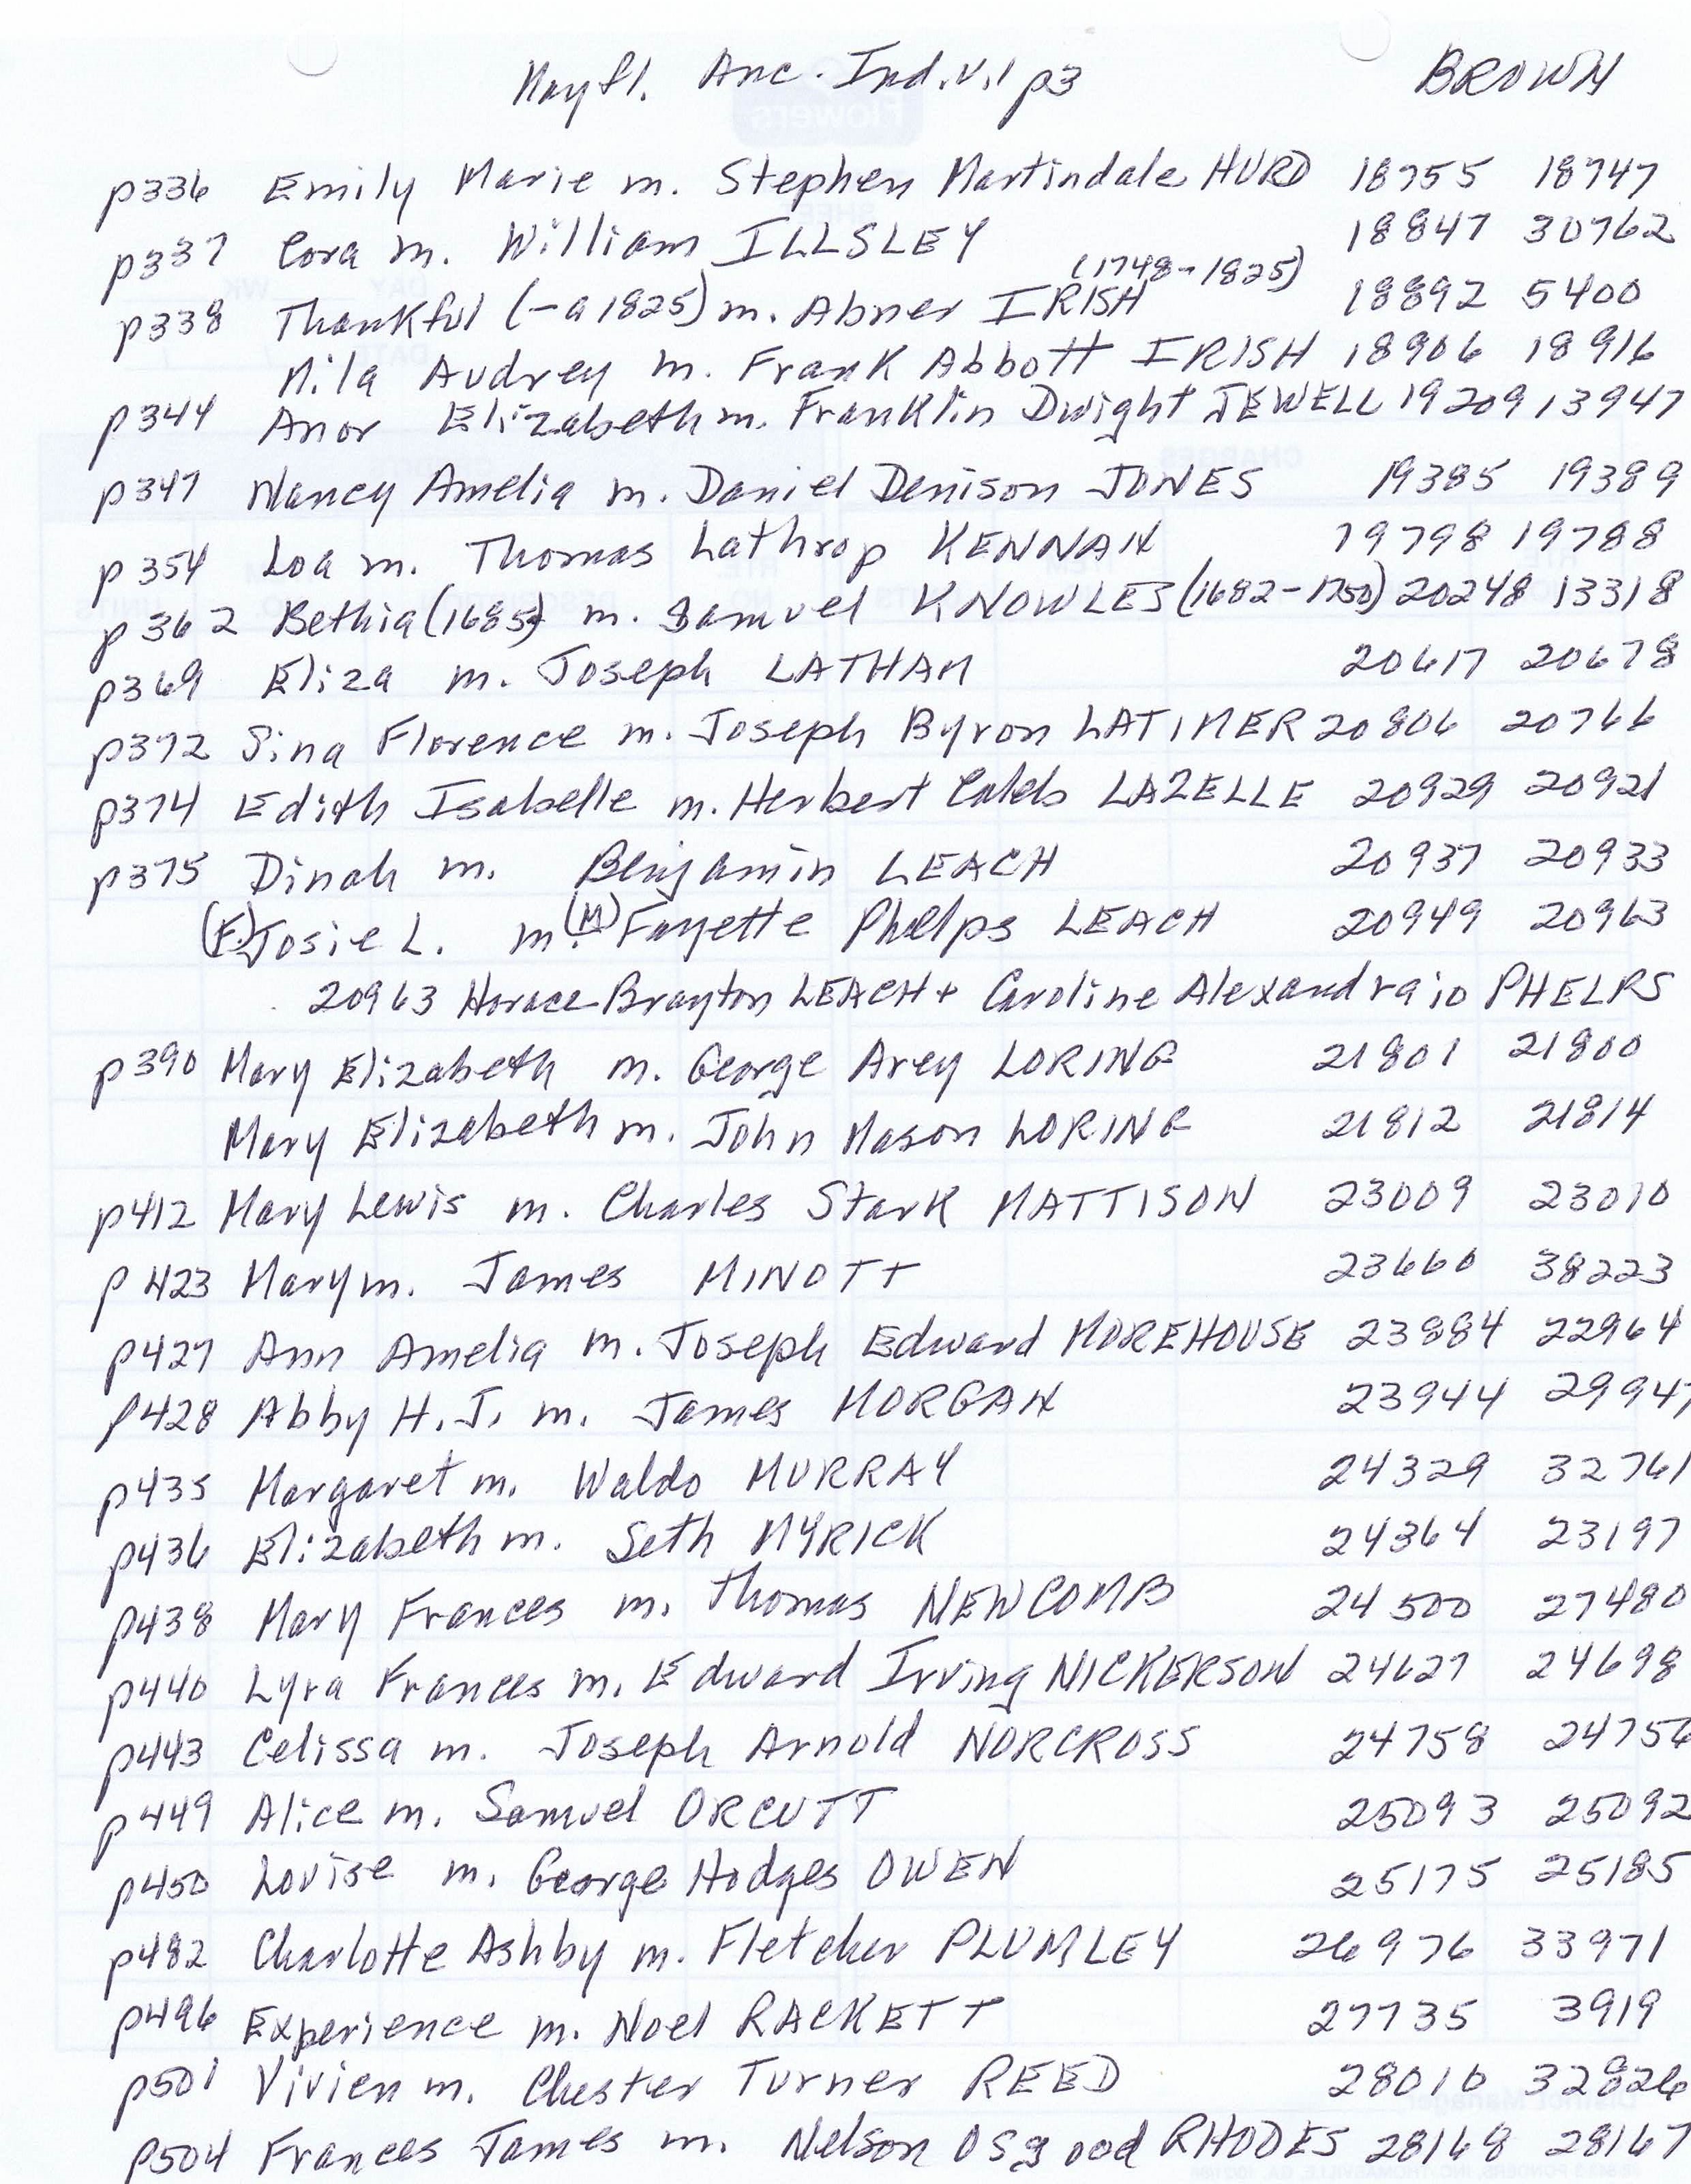 Mayfl. Anc. Ind. v.1 p3 BROWN
p336 Emily Marie m. Stephen Martindale HURD 18755 18747
p337 Cora m. William ILLSLEY 18847 30762
(1748-1825)
p338 Thankful (-a1825) m. Abner IRISH 18892 5400
Mila Audrey m. Frank Abbott IRISH 18906 18916
p344 Anor Elizabeth m. Franklin Dwight JEWELL 19209 13947
p347 Nancy Amelia m. Daniel Denison JONES 19385 19389
p354 Loa m. Thomas Lathrop KENNAN 19798 19788
p362 Bethia (1685) m. Samuel KNOWLES (1682-1750) 20248 13318
p369 Eliza m. Joseph LATHAM 20617 20678
p372 Sina Florence m. Joseph Byron LATIMER 20806 20766
p374 Edith Isabelle m. Herbert Caleb LAZELLE 20929 20921
p375 Dinah m. Benjamin LEACH 20937 20933
(F) Josie L. m. (M) Fayette Phelps LEACH 20949 20963
20963 Horace Brayton LEACH + Caroline Alexandraio PHELPS
p390 Mary Elizabeth m. George Arey LORING 21801 21800
Mary Elizabeth m. John Mason LORING 21812 21814
p412 Mary Lewis m. Charles Stark MATTISON 23009 23010
p423 Mary m. James MINOTT 23660 38223
p427 Ann Amelia m. Joseph Edward MOREHOUSE 23884 22964
p428 Abby H.J. m. James MORGAN 23944 29947
p435 Margaret m. Waldo MURRAY 24329 32761
p436 Elizabeth m. Seth MYRICK 24364 23197
p438 Mary Frances m. Thomas NEWCOMB 24500 27480
p440 Lyra Frances m. Edward Irving NICKERSON 24627 24698
p443 Celissa m. Joseph Arnold NORCROSS 24758 24756
p449 Alice m. Samuel ORCUTT 25093 25092
p450 Louise m. George Hodges OWEN 25175 25185
p482 Charlotte Ashby m. Fletcher PLUMLEY 26976 33971
p496 Experience m. Noel RACKETT 27735 3919
p501 Vivien m. Chester Turner REED 28010 32826
p504 Frances James m. Nelson Osgood RHODES 28168 28167